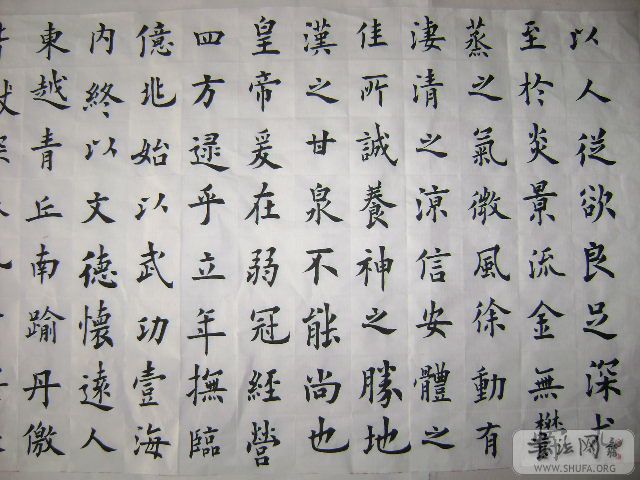 以人從欲良足深尤
至於炎景流金無鬱
蒸之氣微風徐動有
淒清之涼信安體之
佳所誠養神之勝地
漢之甘泉不能尚也
皇帝爰在弱冠經營
四方逮乎立年撫臨
億兆始以武功壹海
內終以文德懷遠人
東越青丘南踰丹儌
書法网
WWW.SHUFA.ORG